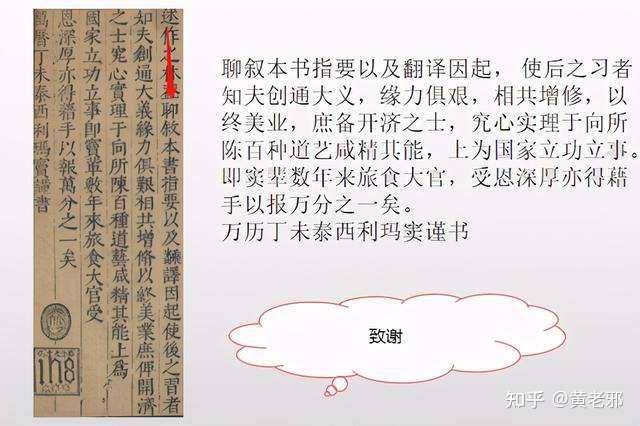 述作之林聊敘本書指要以及繙譯因起使後之習者
知夫創通大義緣力俱艱相共增修以終美業庶俾開濟
之士究心實理于向所陳百種道藝咸精其能上為
國家立功立事即竇輩數年來旅食大官受
恩深厚亦得藉手以報萬分之一矣
萬曆丁未泰西利瑪竇謹書
聊叙本书指要以及翻译因起， 使后之习者
知夫创通大义，缘力俱艰，相共增修，以
终美业，庶备开济之士，究心实理于向所
陈百种道艺咸精其能，上为国家立功立事。
即窦辈数年来旅食大官，受恩深厚亦得藉
手以报万分之一矣。
万历丁未泰西利玛窦谨书
致谢
知乎 @黄老邪